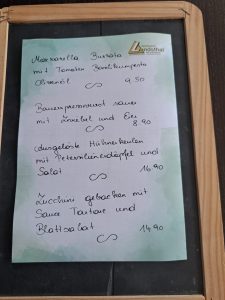 Mozzarella Burrata
mit Tomaten Basilikumpesto
Olivenöl 9.50
Bauernpresswurst sauer
mit Zwiebel und Ei
8.90
ausgelöste Hühnerkeulen
mit Petersilienerdäpfel und
Salat 16.90
Zucchini gebacken mit
Sauce Tartare und
Blattsalat 14.90